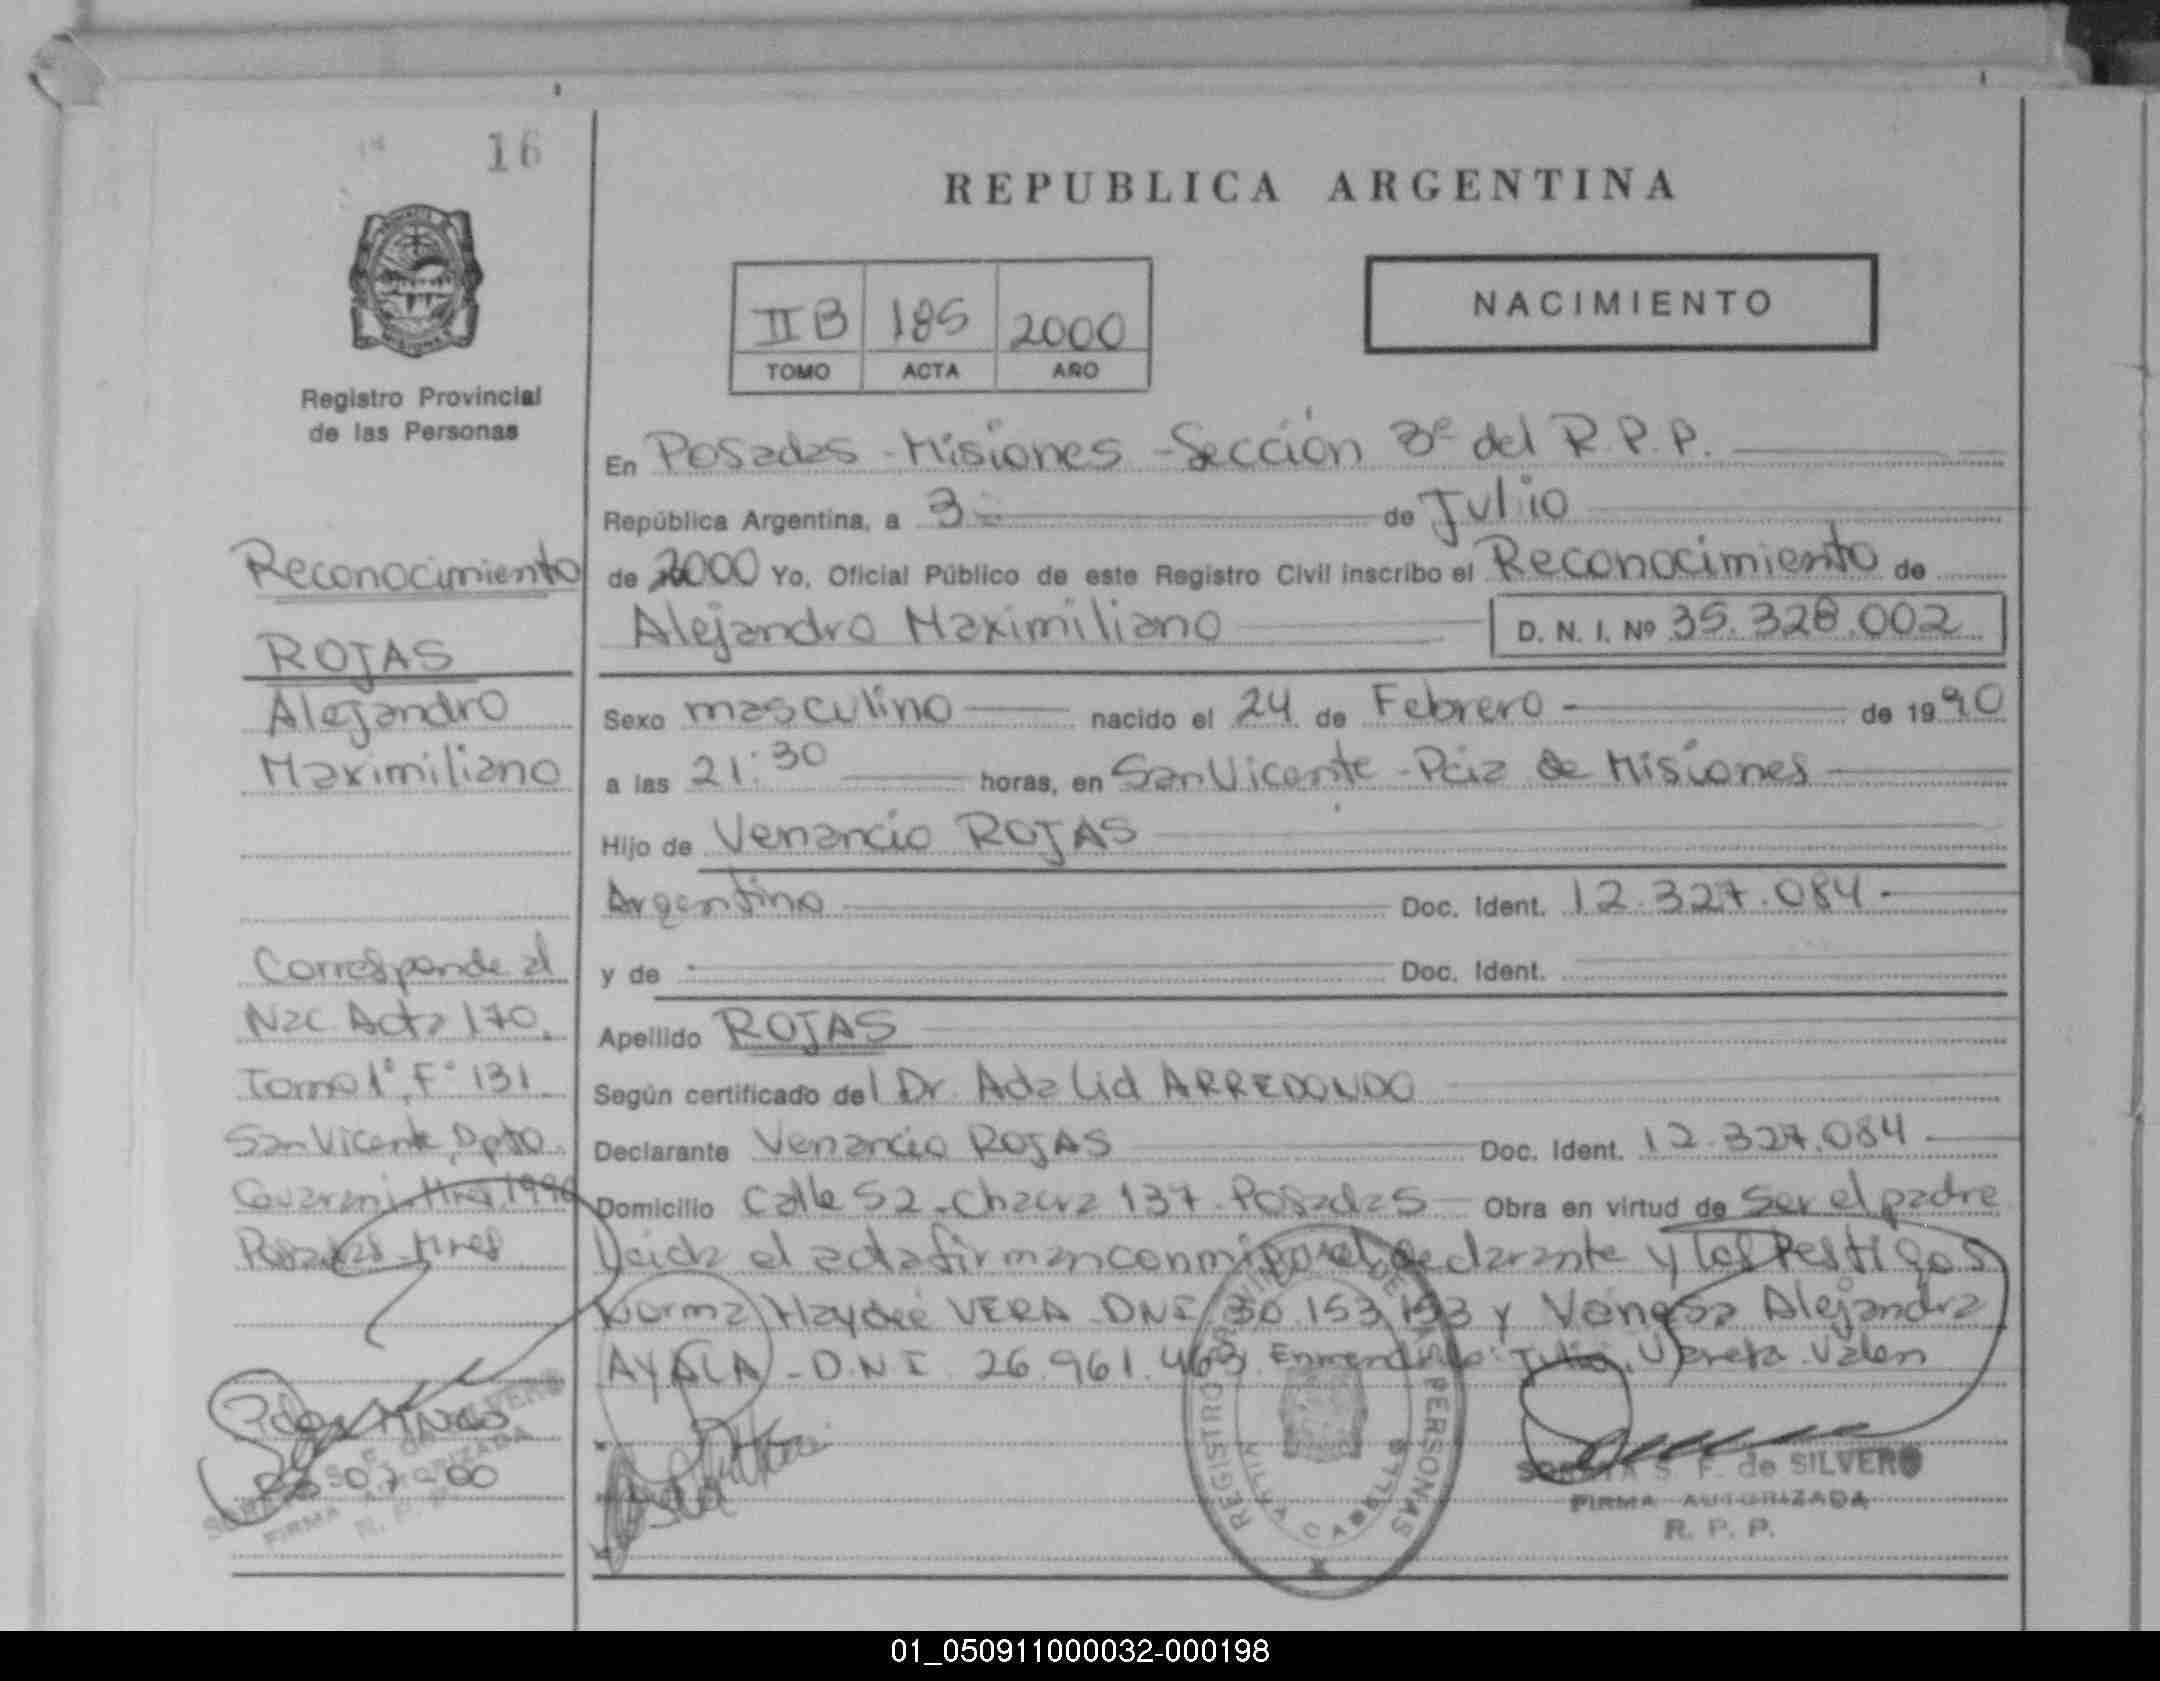 16
REPUBLICA ARGENTINA
NACIMIENTO
II B 185 2000
TOMO ACTA AÑO
Registro Provincial
de las Personas
En Posadas - Misiones - Sección 3ª del R.P.P.
República Argentina, a 3 de Julio
de 2000 Yo, Oficial Público de este Registro Civil inscribo el Reconocimiento de
Alejandro Maximiliano D. N. I. Nº 35.328.002
Sexo masculino nacido el 24 de Febrero de 1990
a las 21:30 horas, en San Vicente - Pcia de Misiones
Hijo de Venancio ROJAS
Argentino Doc. Ident. 12.327.084
y de Doc. Ident.
Apellido ROJAS
Según certificado del Dr. Adalid ARREDONDO
Declarante Venancio ROJAS Doc. Ident. 12.327.084
Domicilio Calle 52 - Chacra 137 - Posadas Obra en virtud de ser el padre
Leída el acta firman conmigo el declarante y los testigos
Norma Haydeé VERA DNI 30.153.193 y Vanesa Alejandra
AYALA - D.N.I. 26.961.463 Enmendado: Julio, Vale
Reconocimiento
ROJAS
Alejandro
Maximiliano
Corresponde al
Nac Acta 170.
Tomo 1°, F° 131
San Vicente, Dpto.
Guarani, Mnes, 1990
Posadas Mnes
07-00
FIRMA AUTORIZADA
REGISTRO PROVINCIAL DE LAS PERSONAS
MARTINA CABRILLO
S. F. de SILVERO
FIRMA AUTORIZADA
R. P. P.
01_050911000032-000198